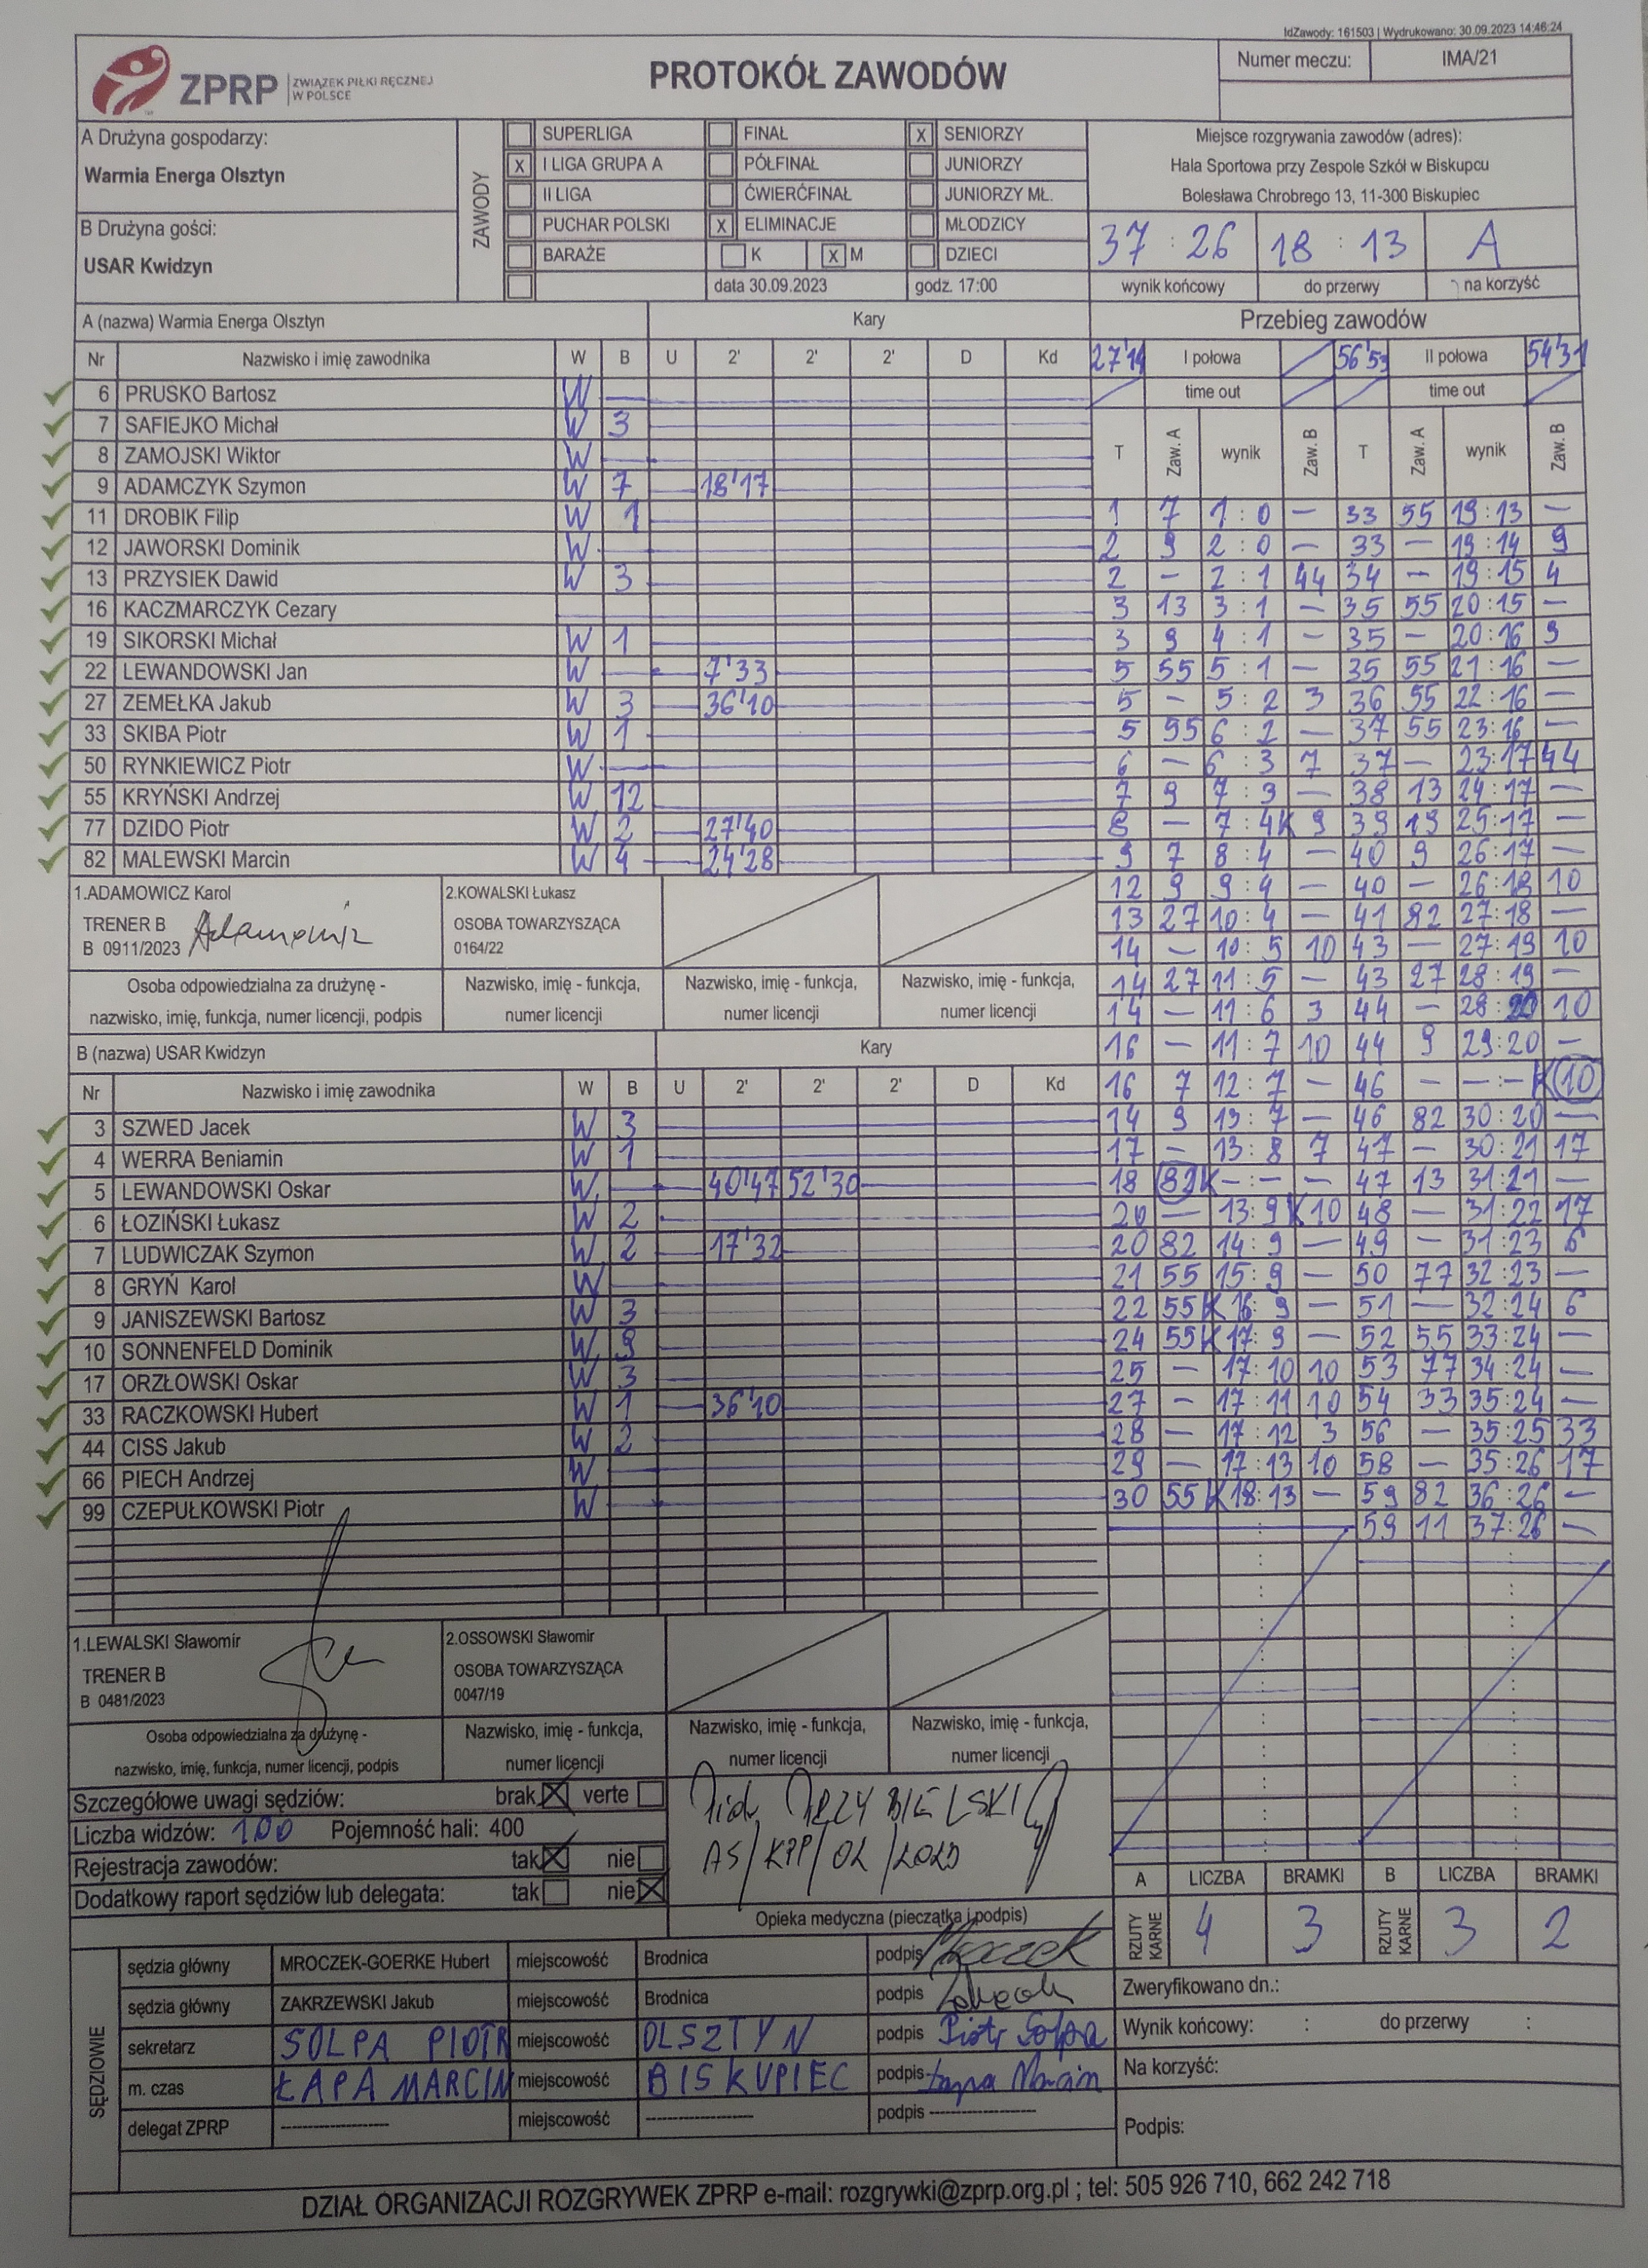 IdZawody: 161503 | Wydrukowano: 30.09.2023 14:46:24
ZPRP ZWIĄZEK PIŁKI RĘCZNEJ W POLSCE
PROTOKÓŁ ZAWODÓW
Numer meczu: IMA/21
A Drużyna gospodarzy:
Warmia Energa Olsztyn
B Drużyna gości:
USAR Kwidzyn
ZAWODY
SUPERLIGA FINAŁ X SENIORZY
X I LIGA GRUPA A PÓŁFINAŁ JUNIORZY
II LIGA ĆWIERĆFINAŁ JUNIORZY MŁ.
PUCHAR POLSKI X ELIMINACJE MŁODZICY
BARAŻE K X M DZIECI
data 30.09.2023 godz. 17:00
Miejsce rozgrywania zawodów (adres):
Hala Sportowa przy Zespole Szkół w Biskupcu
Bolesława Chrobrego 13, 11-300 Biskupiec
37 : 26 18 : 13 A
wynik końcowy do przerwy na korzyść
A (nazwa) Warmia Energa Olsztyn Kary
Nr Nazwisko i imię zawodnika W B U 2' 2' 2' D Kd
6 PRUSKO Bartosz W —
7 SAFIEJKO Michał W 3
8 ZAMOJSKI Wiktor W —
9 ADAMCZYK Szymon W 7 18'17
11 DROBIK Filip W 1
12 JAWORSKI Dominik W —
13 PRZYSIEK Dawid W 3
16 KACZMARCZYK Cezary
19 SIKORSKI Michał W 1
22 LEWANDOWSKI Jan W — 7'33
27 ZEMEŁKA Jakub W 3 36'10
33 SKIBA Piotr W 1
50 RYNKIEWICZ Piotr W —
55 KRYŃSKI Andrzej W 12
77 DZIDO Piotr W 2 27'40
82 MALEWSKI Marcin W 4 24'28
1.ADAMOWICZ Karol
TRENER B
B 0911/2023 Adamowicz
2.KOWALSKI Łukasz
OSOBA TOWARZYSZĄCA
0164/22
Osoba odpowiedzialna za drużynę -
nazwisko, imię, funkcja, numer licencji, podpis
Nazwisko, imię - funkcja,
numer licencji
Nazwisko, imię - funkcja,
numer licencji
Nazwisko, imię - funkcja,
numer licencji
B (nazwa) USAR Kwidzyn Kary
Nr Nazwisko i imię zawodnika W B U 2' 2' 2' D Kd
3 SZWED Jacek W 3
4 WERRA Beniamin W 1
5 LEWANDOWSKI Oskar W — 40'47 52'30
6 ŁOZIŃSKI Łukasz W 2
7 LUDWICZAK Szymon W 2 17'32
8 GRYŃ Karol W —
9 JANISZEWSKI Bartosz W 3
10 SONNENFELD Dominik W 9
17 ORZŁOWSKI Oskar W 3
33 RACZKOWSKI Hubert W 1 36'10
44 CISS Jakub W 2
66 PIECH Andrzej W —
99 CZEPUŁKOWSKI Piotr W —
1.LEWALSKI Sławomir
TRENER B
B 0481/2023
2.OSSOWSKI Sławomir
OSOBA TOWARZYSZĄCA
0047/19
Osoba odpowiedzialna za drużynę -
nazwisko, imię, funkcja, numer licencji, podpis
Nazwisko, imię - funkcja,
numer licencji
Nazwisko, imię - funkcja,
numer licencji
Nazwisko, imię - funkcja,
numer licencji
Przebieg zawodów
27'14 I połowa 56'53 II połowa 54'31
time out time out
T Zaw. A wynik Zaw. B T Zaw. A wynik Zaw. B
1 7 1 : 0 — 33 55 19:13 —
2 9 2 : 0 — 33 — 19:14 9
2 — 2 : 1 44 34 — 19:15 4
3 13 3 : 1 — 35 55 20:15 —
3 9 4 : 1 — 35 — 20:16 9
5 55 5 : 1 — 35 55 21:16 —
5 — 5 : 2 3 36 55 22:16 —
5 55 6 : 2 — 37 55 23:16 —
6 — 6 : 3 7 37 — 23:17 44
7 9 7 : 3 — 38 13 24:17 —
8 — 7 : 4K 9 39 19 25:17 —
9 7 8 : 4 — 40 9 26:17 —
12 9 9 : 4 — 40 — 26:18 10
13 27 10 : 4 — 41 82 27:18 —
14 — 10 : 5 10 43 — 27:19 10
14 27 11 : 5 — 43 27 28:19 —
14 — 11 : 6 3 44 — 28:20 10
16 — 11 : 7 10 44 9 29:20 —
16 7 12 : 7 — 46 — —:— K 10
14 9 13 : 7 — 46 82 30:20 —
17 — 13 : 8 7 47 — 30:21 17
18 82K — : — — 47 13 31:21 —
20 — 13 : 9 K10 48 — 31:22 17
20 82 14 : 9 — 49 — 31:23 6
21 55 15 : 9 — 50 77 32:23 —
22 55K 16 : 9 — 51 — 32:24 6
24 55K 17 : 9 — 52 55 33:24 —
25 — 17 : 10 10 53 77 34:24 —
27 — 17 : 11 10 54 33 35:24 —
28 — 17 : 12 3 56 — 35:25 33
29 — 17 : 13 10 58 — 35:26 17
30 55K 18 : 13 — 59 82 36:26 —
59 11 37:26 —
Szczegółowe uwagi sędziów: brak X verte
Liczba widzów: 100 Pojemność hali: 400
Rejestracja zawodów: tak X nie
Dodatkowy raport sędziów lub delegata: tak nie X
AS/KPP/02/2023
Opieka medyczna (pieczątka i podpis)
A LICZBA BRAMKI B LICZBA BRAMKI
RZUTY KARNE 4 3 RZUTY KARNE 3 2
SĘDZIOWIE
sędzia główny MROCZEK-GOERKE Hubert miejscowość Brodnica podpis Mroczek
sędzia główny ZAKRZEWSKI Jakub miejscowość Brodnica podpis
sekretarz SOLPA PIOTR miejscowość OLSZTYN podpis Piotr Solpa
m. czas ŁAPA MARCIN miejscowość BISKUPIEC podpis Łapa Marcin
delegat ZPRP ---------- miejscowość ---------- podpis ----------
Zweryfikowano dn.:
Wynik końcowy: : do przerwy :
Na korzyść:
Podpis:
DZIAŁ ORGANIZACJI ROZGRYWEK ZPRP e-mail: rozgrywki@zprp.org.pl ; tel: 505 926 710, 662 242 718